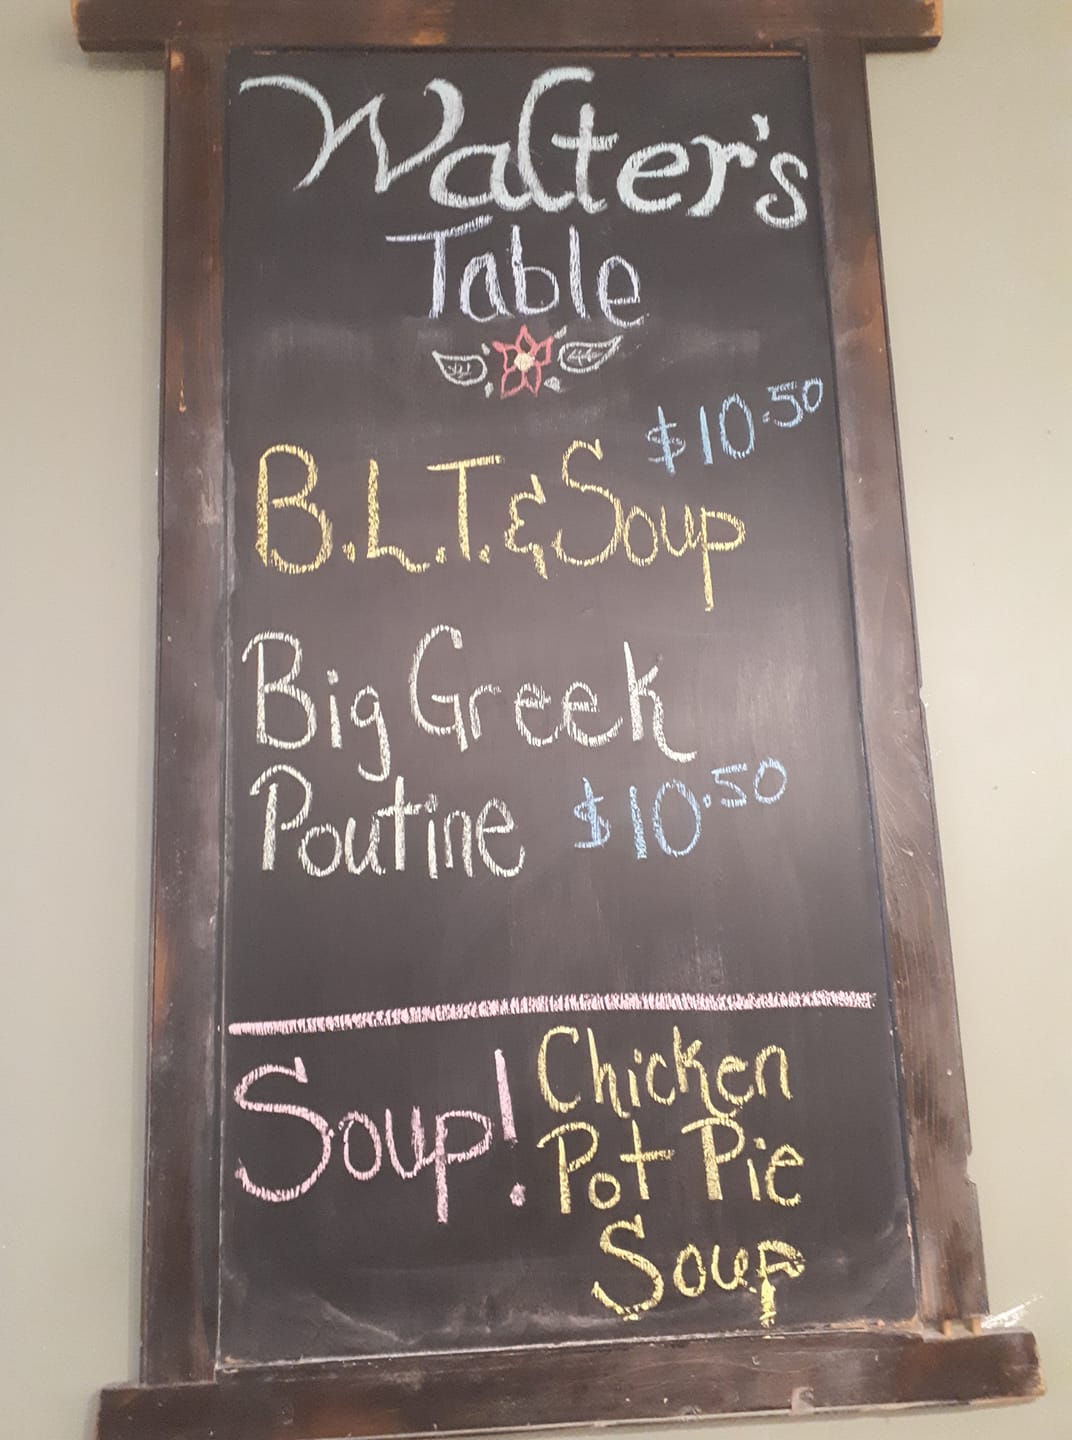 Walter's
Table
$10.50
B.L.T. & Soup
Big Greek
Poutine $10.50
Soup! Chicken
Pot Pie
Soup